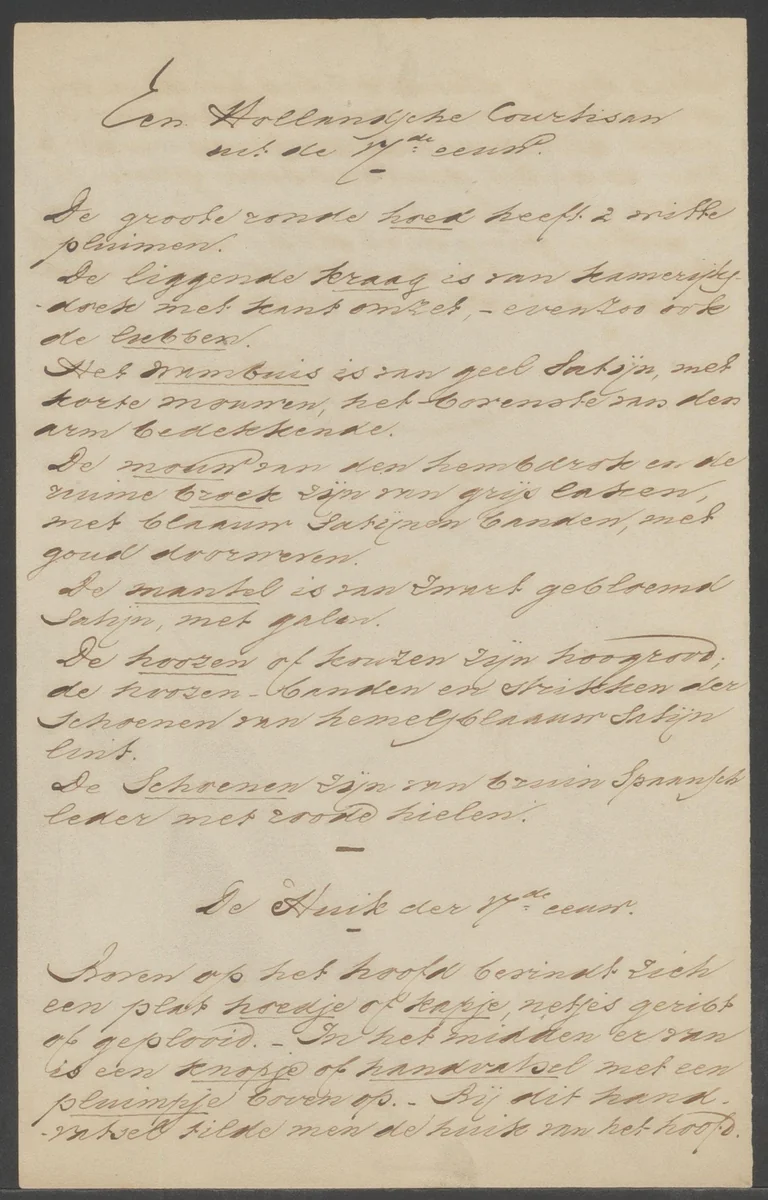 Een Hollandsche Courtisan
uit de 17de eeuw.
De groote ronde hoed heeft 2 witte
pluimen.
De liggende kraag is van kamerijks-
-doek met kant omzet, - evenzoo ook
de lubben.
Het wambuis is van geel Satijn, met
korte mouwen, het bovenste van den
arm bedekkende.
De mouw van den hembdrok en de
ruime broek zijn van grijs laken,
met blaauw Satijnen banden, met
goud doorweven.
De mantel is van zwart gebloemd
Satijn, met galon.
De hoozen of kouzen zijn hoogrood;
de hoozen-banden en strikken der
schoenen van hemelsblaauw Satijn
lint.
De Schoenen zijn van bruin Spaansch
leder met roode hielen.
De Huik der 17de eeuw.
Boven op het hoofd bevindt zich
een plat hoedje of kapje, netjes geribt
of geplooid. - In het midden er van
is een knopje of handvatsel met een
pluimpje boven op. - Bij dit hand-
-vatsel tilde men de huik van het hoofd.